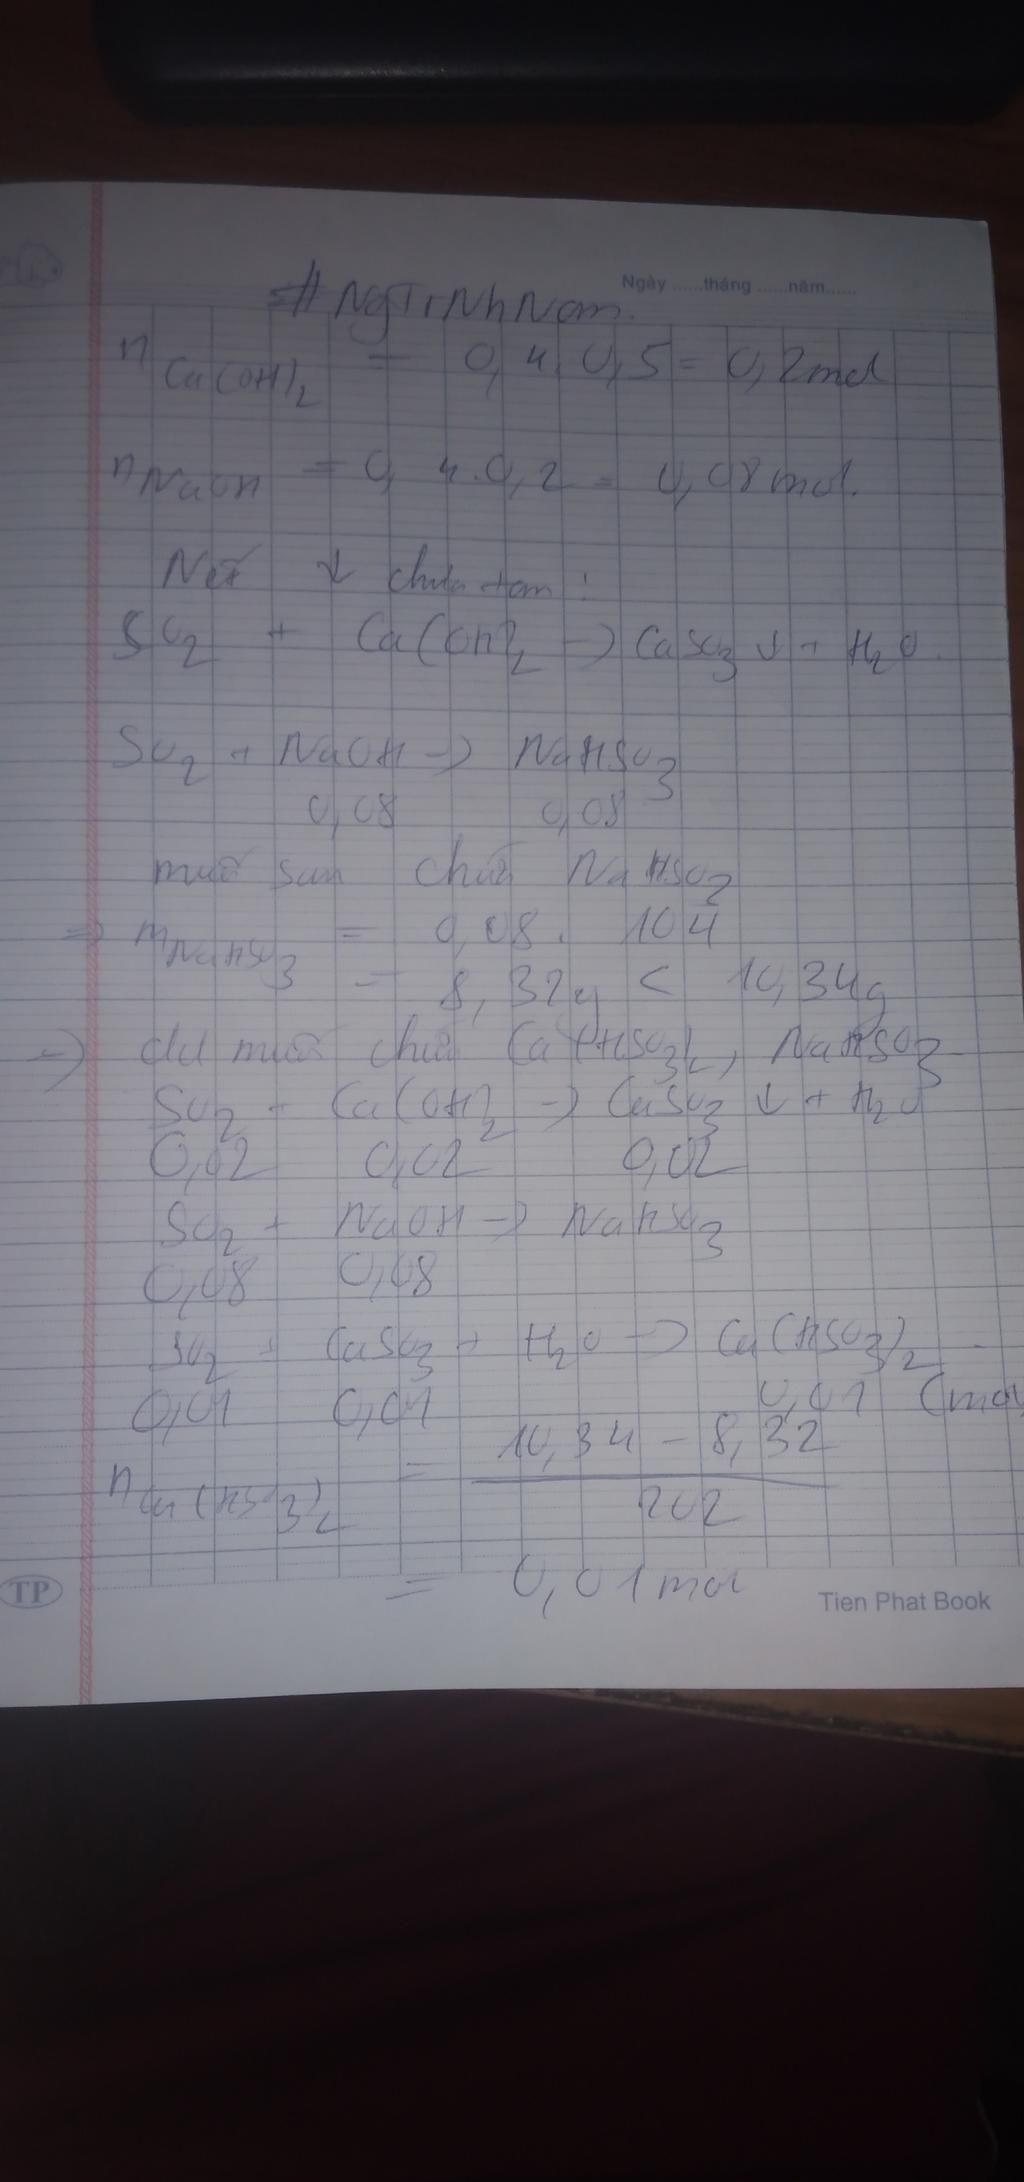 Ngày ......tháng ......năm......
#NgTrNhNam.
n Ca(OH)2 = 0,4.0,5 = 0,2mol
n NaOH = 0,4.0,2 = 0,08mol.
Nếu ↓ chưa tan :
SO2 + Ca(OH)2 -> CaSO3 ↓ + H2O.
SO2 + NaOH -> NaHSO3
0,08 0,08
muối sau chứa NaHSO3
=> m NaHSO3 = 0,08.104
= 8,32g < 10,34g
-> dd muối chứa Ca(HSO3)2, NaHSO3
SO2 + Ca(OH)2 -> CaSO3 ↓ + H2O
0,02 0,02 0,02
SO2 + NaOH -> NaHSO3
0,08 0,08
SO2 + CaSO3 + H2O -> Ca(HSO3)2
0,01 0,01 0,01 (mol
n Ca(HSO3)2 = 10,34 - 8,32
202
= 0,01mol
TP
Tien Phat Book